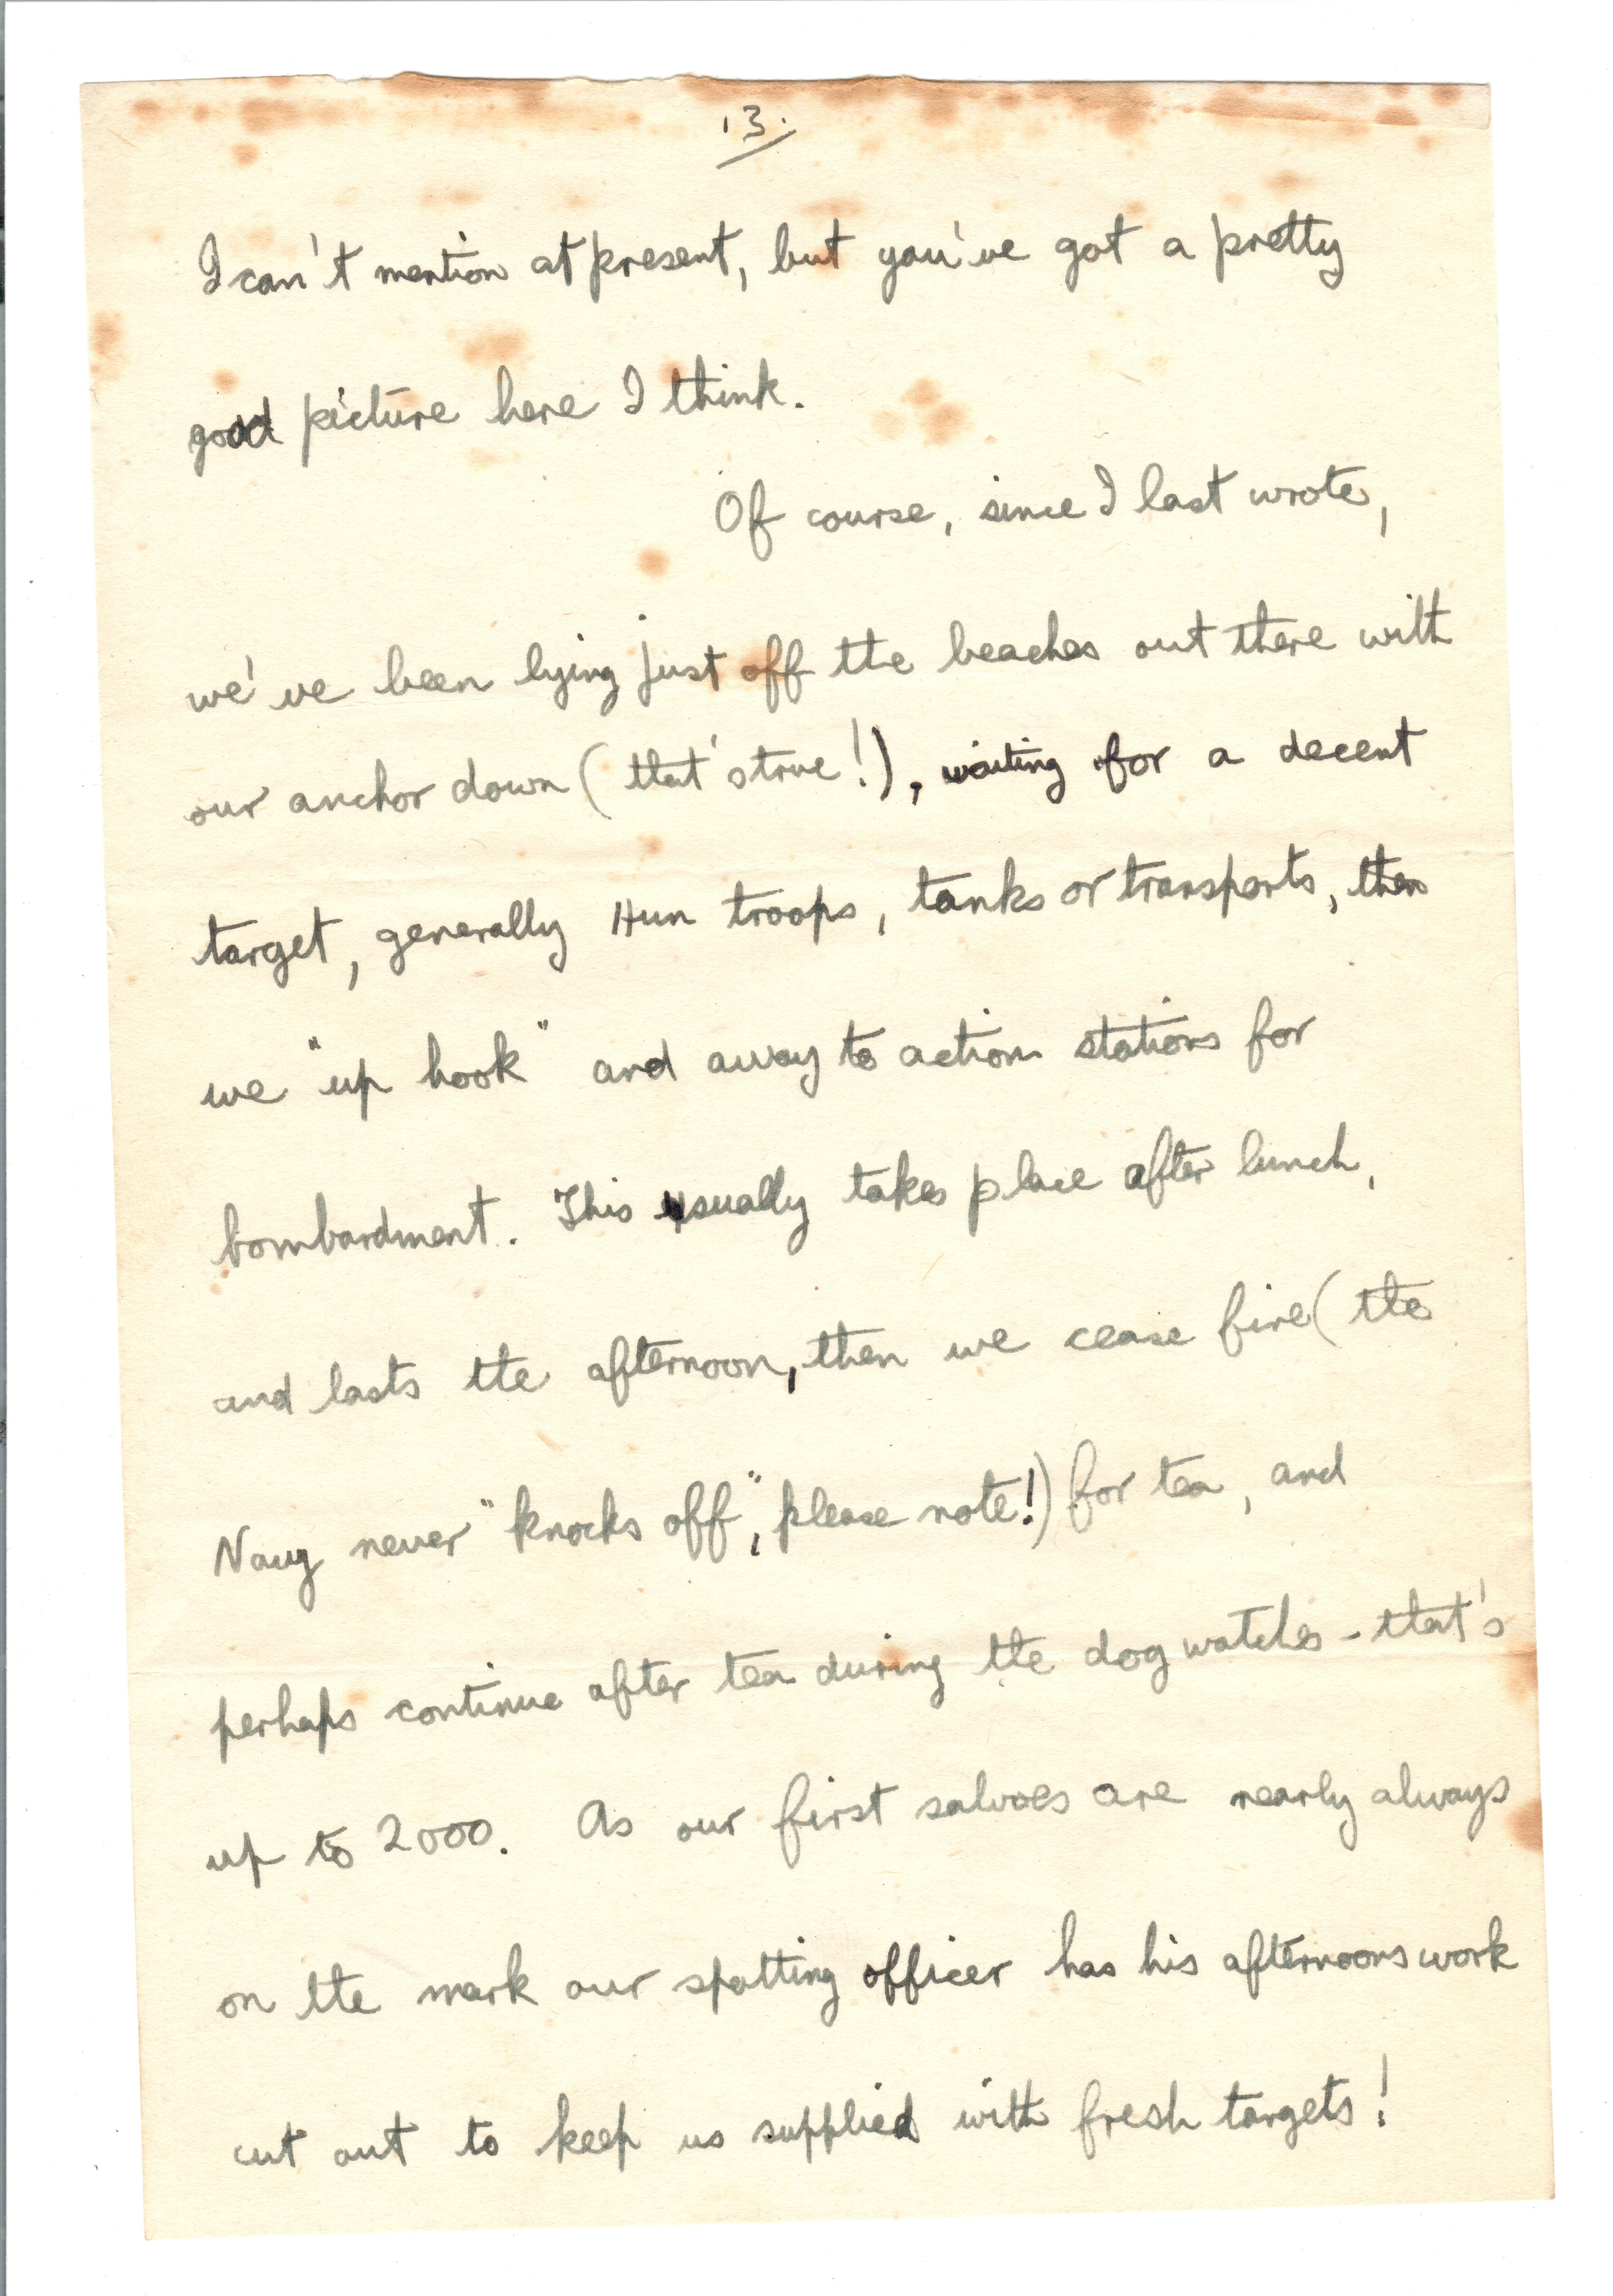 13.
I can't mention at present, but you've got a pretty
good picture here I think.
Of course, since I last wrote,
we've been lying just off the beaches out there with
our anchor down (that's true!), waiting for a decent
target, generally Hun troops, tanks or transports, then
we "up hook" and away to action stations for
bombardment. This usually takes place after lunch,
and lasts the afternoon, then we cease fire (the
Navy never "knocks off", please note!) for tea, and
perhaps continue after tea during the dog watches - that's
up to 2000. As our first salvoes are nearly always
on the mark our spotting officer has his afternoons work
cut out to keep us supplied with fresh targets!